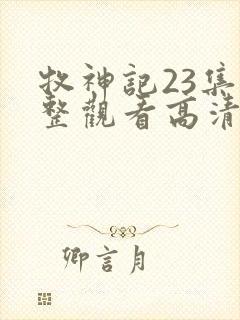 牧神記23集
整觀看高清
卿言月